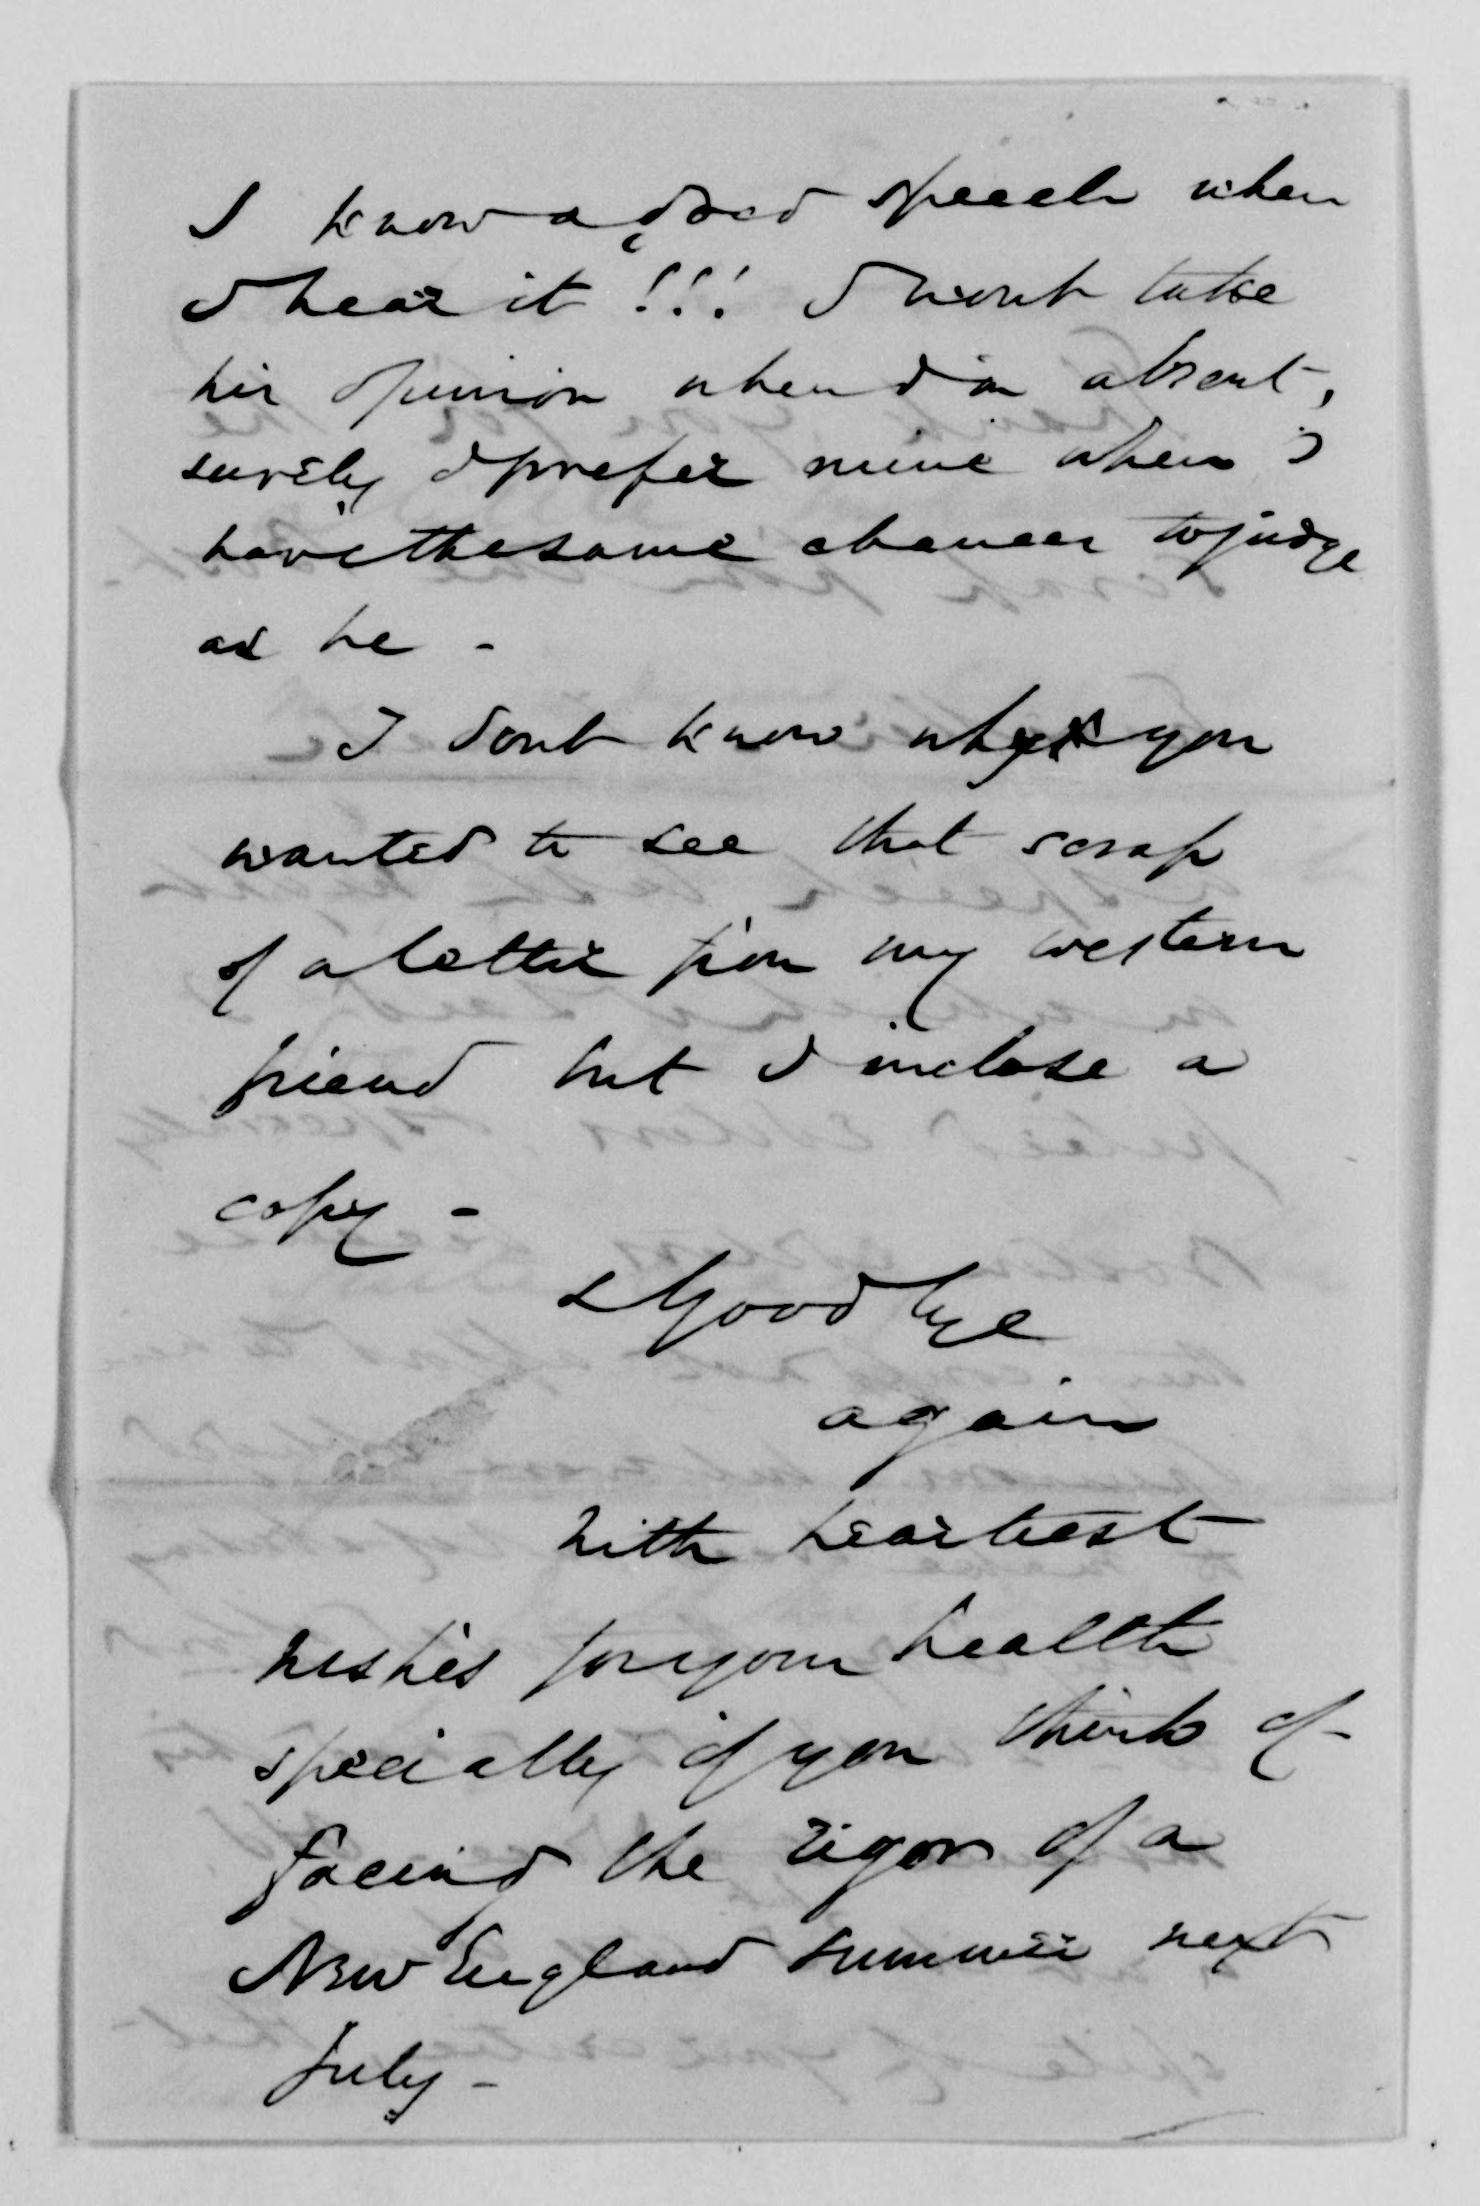 I know a good speech when
I hear it!!! I wont take
his opinion when I'm absent,
surely I prefer mine when I
have the same chances to judge
as he -
I dont know why you
wanted to see that scrap
of a letter from my western
friend but I inclose a
copy -
& Good bye
again
with heartiest
wishes for your health
specially if you think of
facing the rigor of a
New England summer next
July -